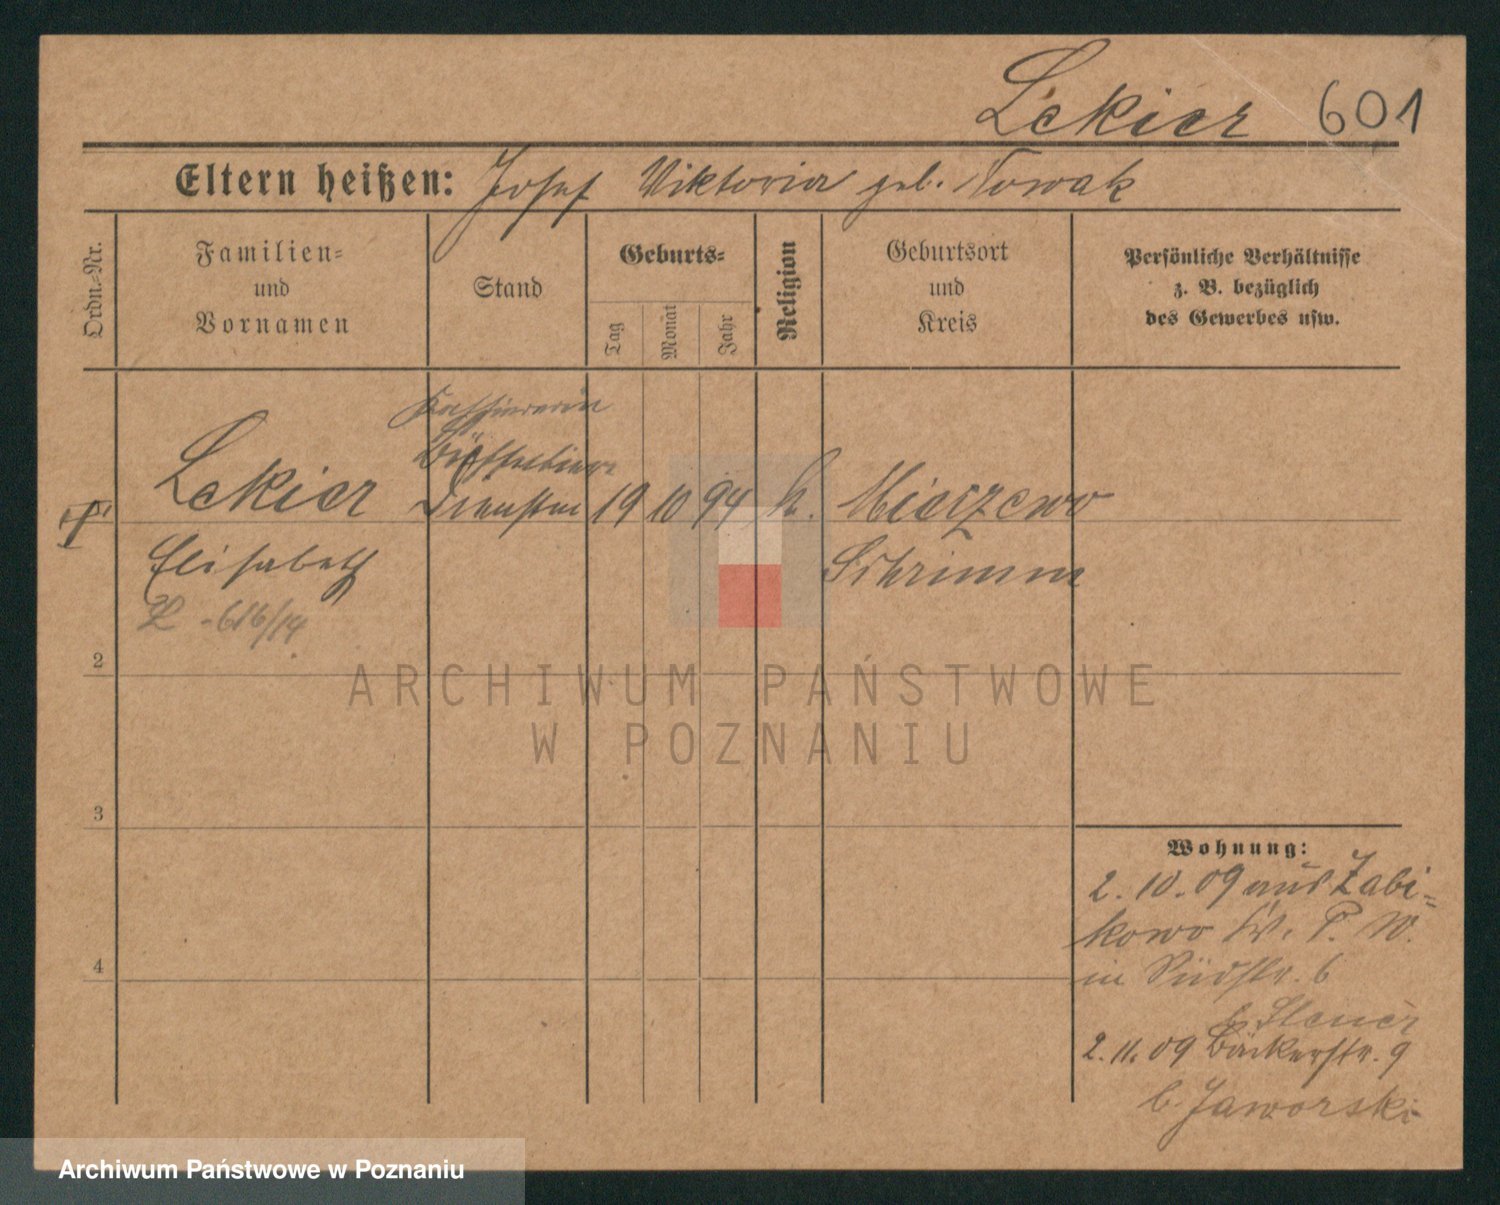 Lekier 601
Eltern heißen: Josef Viktoria geb. Nowak
Ordn.-Nr.
Familien-
und
Vornamen
Stand
Geburts-
Tag
Monat
Jahr
Religion
Geburtsort
und
Kreis
Persönliche Verhältnisse
z. B. bezüglich
des Gewerbes usw.
Kassiererin
Lekier
19 10 94 k. Mieczewo
Elisabeth
Schrimm
616/14
2
3
4
Wohnung:
2. 10. 09 aus Zabi-
kowo Kr. P. W.
in Südstr. 6
b. Steuer
2. 11. 09 Bäckerstr. 9
b. Jaworski
ARCHIWUM PAŃSTWOWE
W POZNANIU
Archiwum Państwowe w Poznaniu